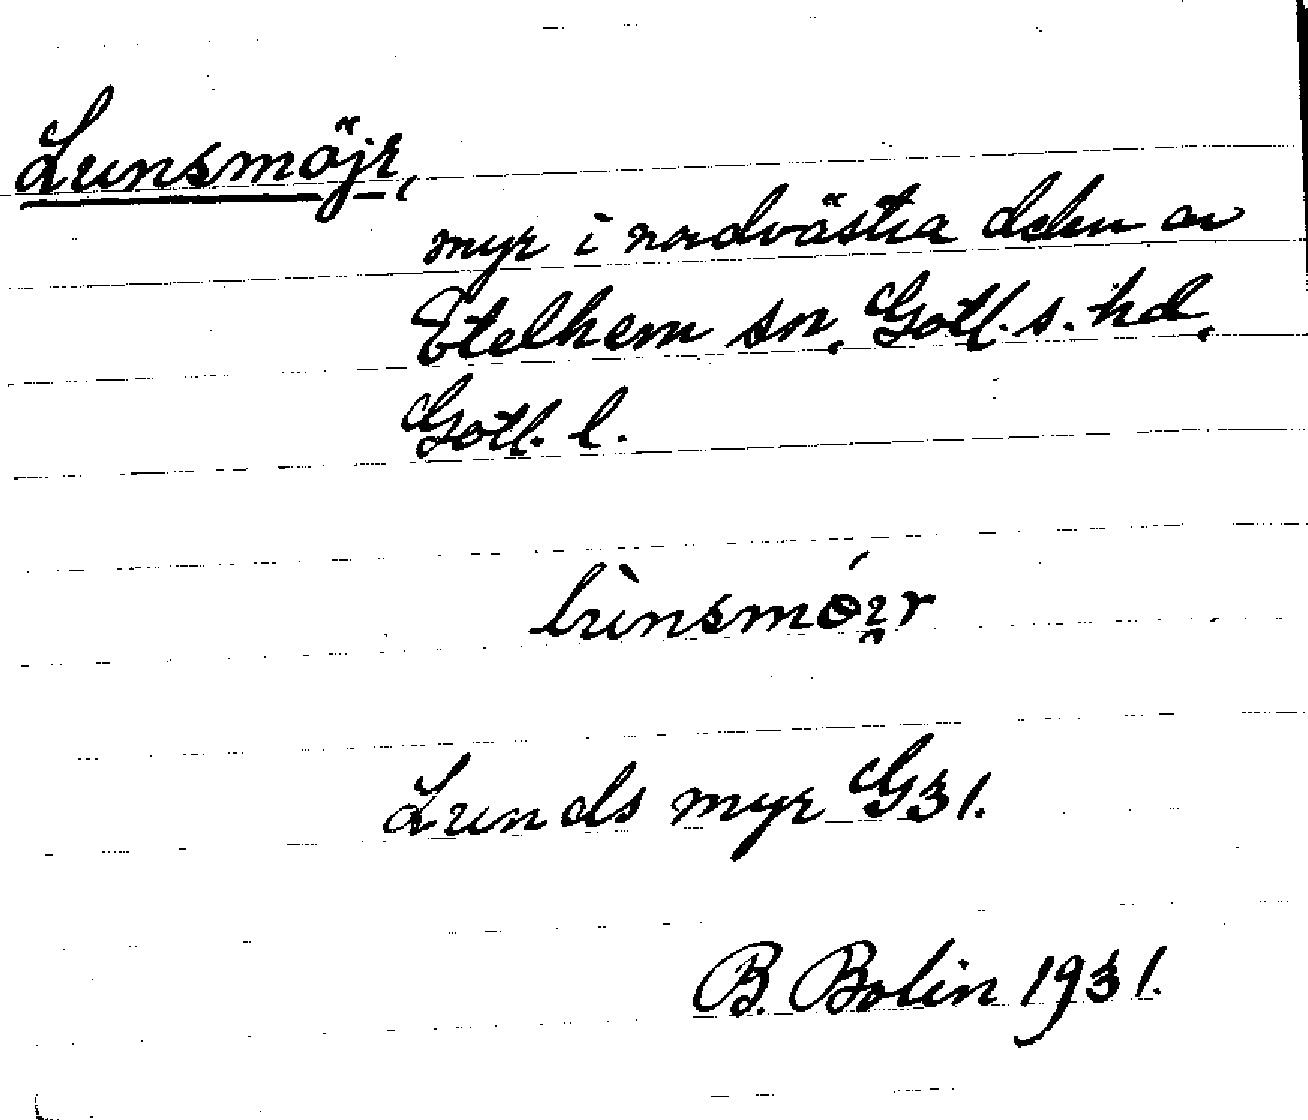 Lunsmöjr,
myr i nordvästra delen av
Etelhem sn, Gotl. s. hd,
Gotl. l.
Lunds myr G31.
B. Bolin 1931.